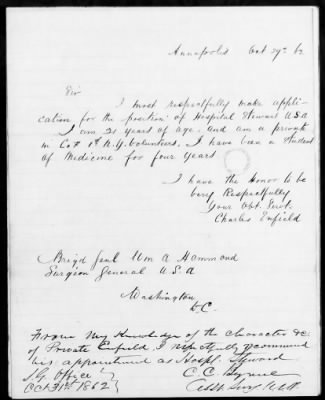 Annapolis Oct 29th 62
Sir
I most respectfully make appli-
cation for the position of Hospital Steward U.S.A
I am 21 years of age and am a private
in Co 1st N.Y. Volunteers. I have been a Student
of Medicine for four years
I have the honor to be
Very Respectfully
Your Obt. Servt.
Charles Enfield
Brig'd Genl Wm A Hammond
Surgeon General U.S.A
Washington
D.C.
From my knowledge of the character &c
of Private Enfield I respectfully recommend
his appointment as Hospl. Steward
S.G. Office
Oct 31st 1862
C. C. Byrne
Asst Surg U.S.A.